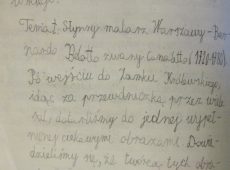 Temat: Słynny malarz Warszawy - Ber-
nardo Belotto zwany Canaletto (1721-1780).
Po wejściu do Zamku Królewskiego,
idąc za przewodniczką przez wiele
sal, dotarliśmy do jednej wypeł-
nionej ciekawymi obrazami. Dowie-
dzieliśmy się, że twórcą tych obra-